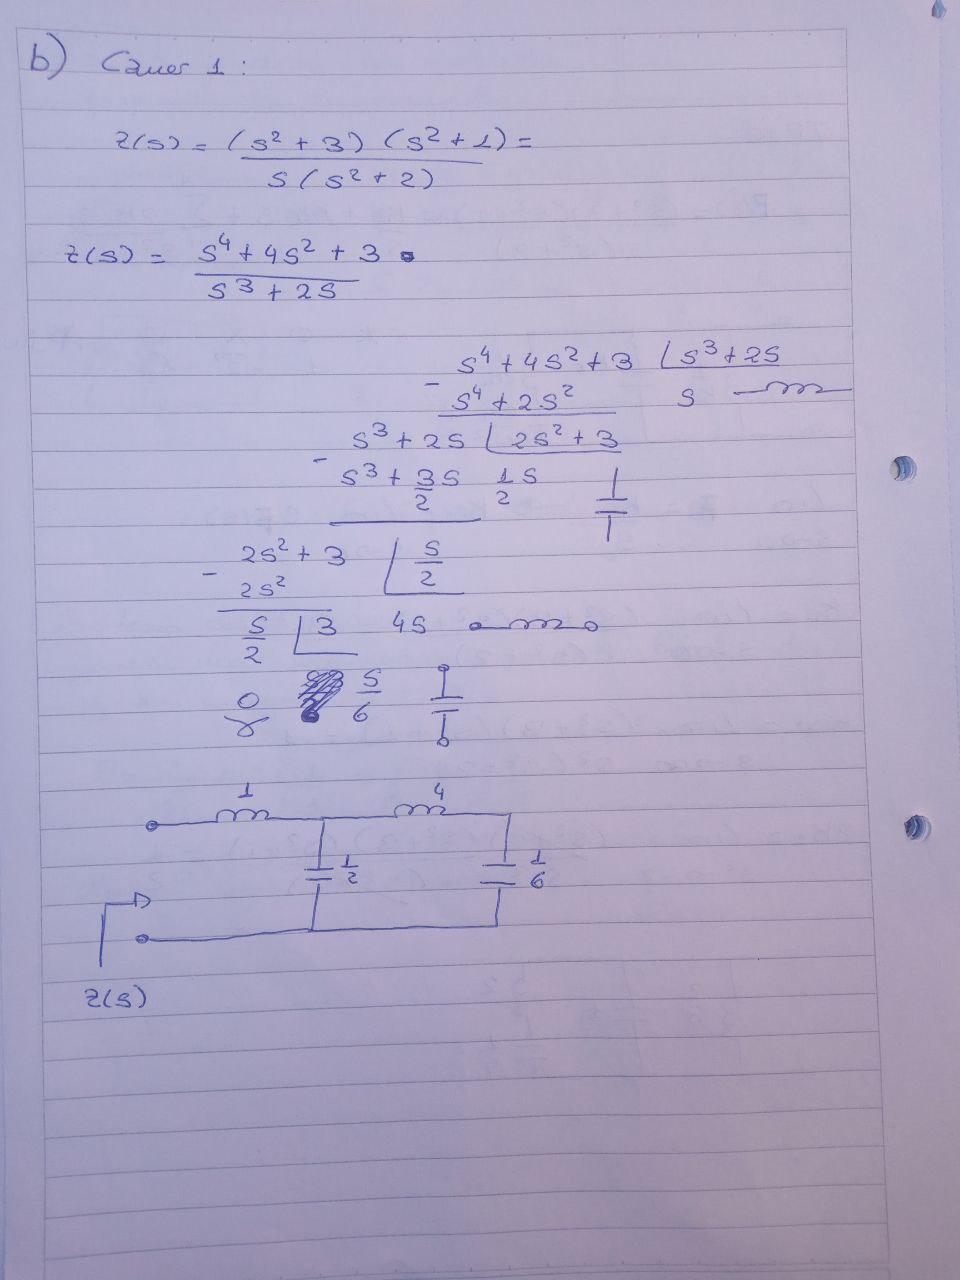 b) Cauer 1:
Z(s) = (s² + 3) (s² + 1) =
s (s² + 2)
Z(s) = s⁴ + 4s² + 3
s³ + 2s
s⁴ + 4s² + 3 s³ + 2s
- s⁴ + 2s² s
s³ + 2s 2s² + 3
- s³ + 3/2 s 1/2 s
2s² + 3 s/2
- 2s²
s/2 3 4s
0 s/6
1 4
1/2 1/6
Z(s)